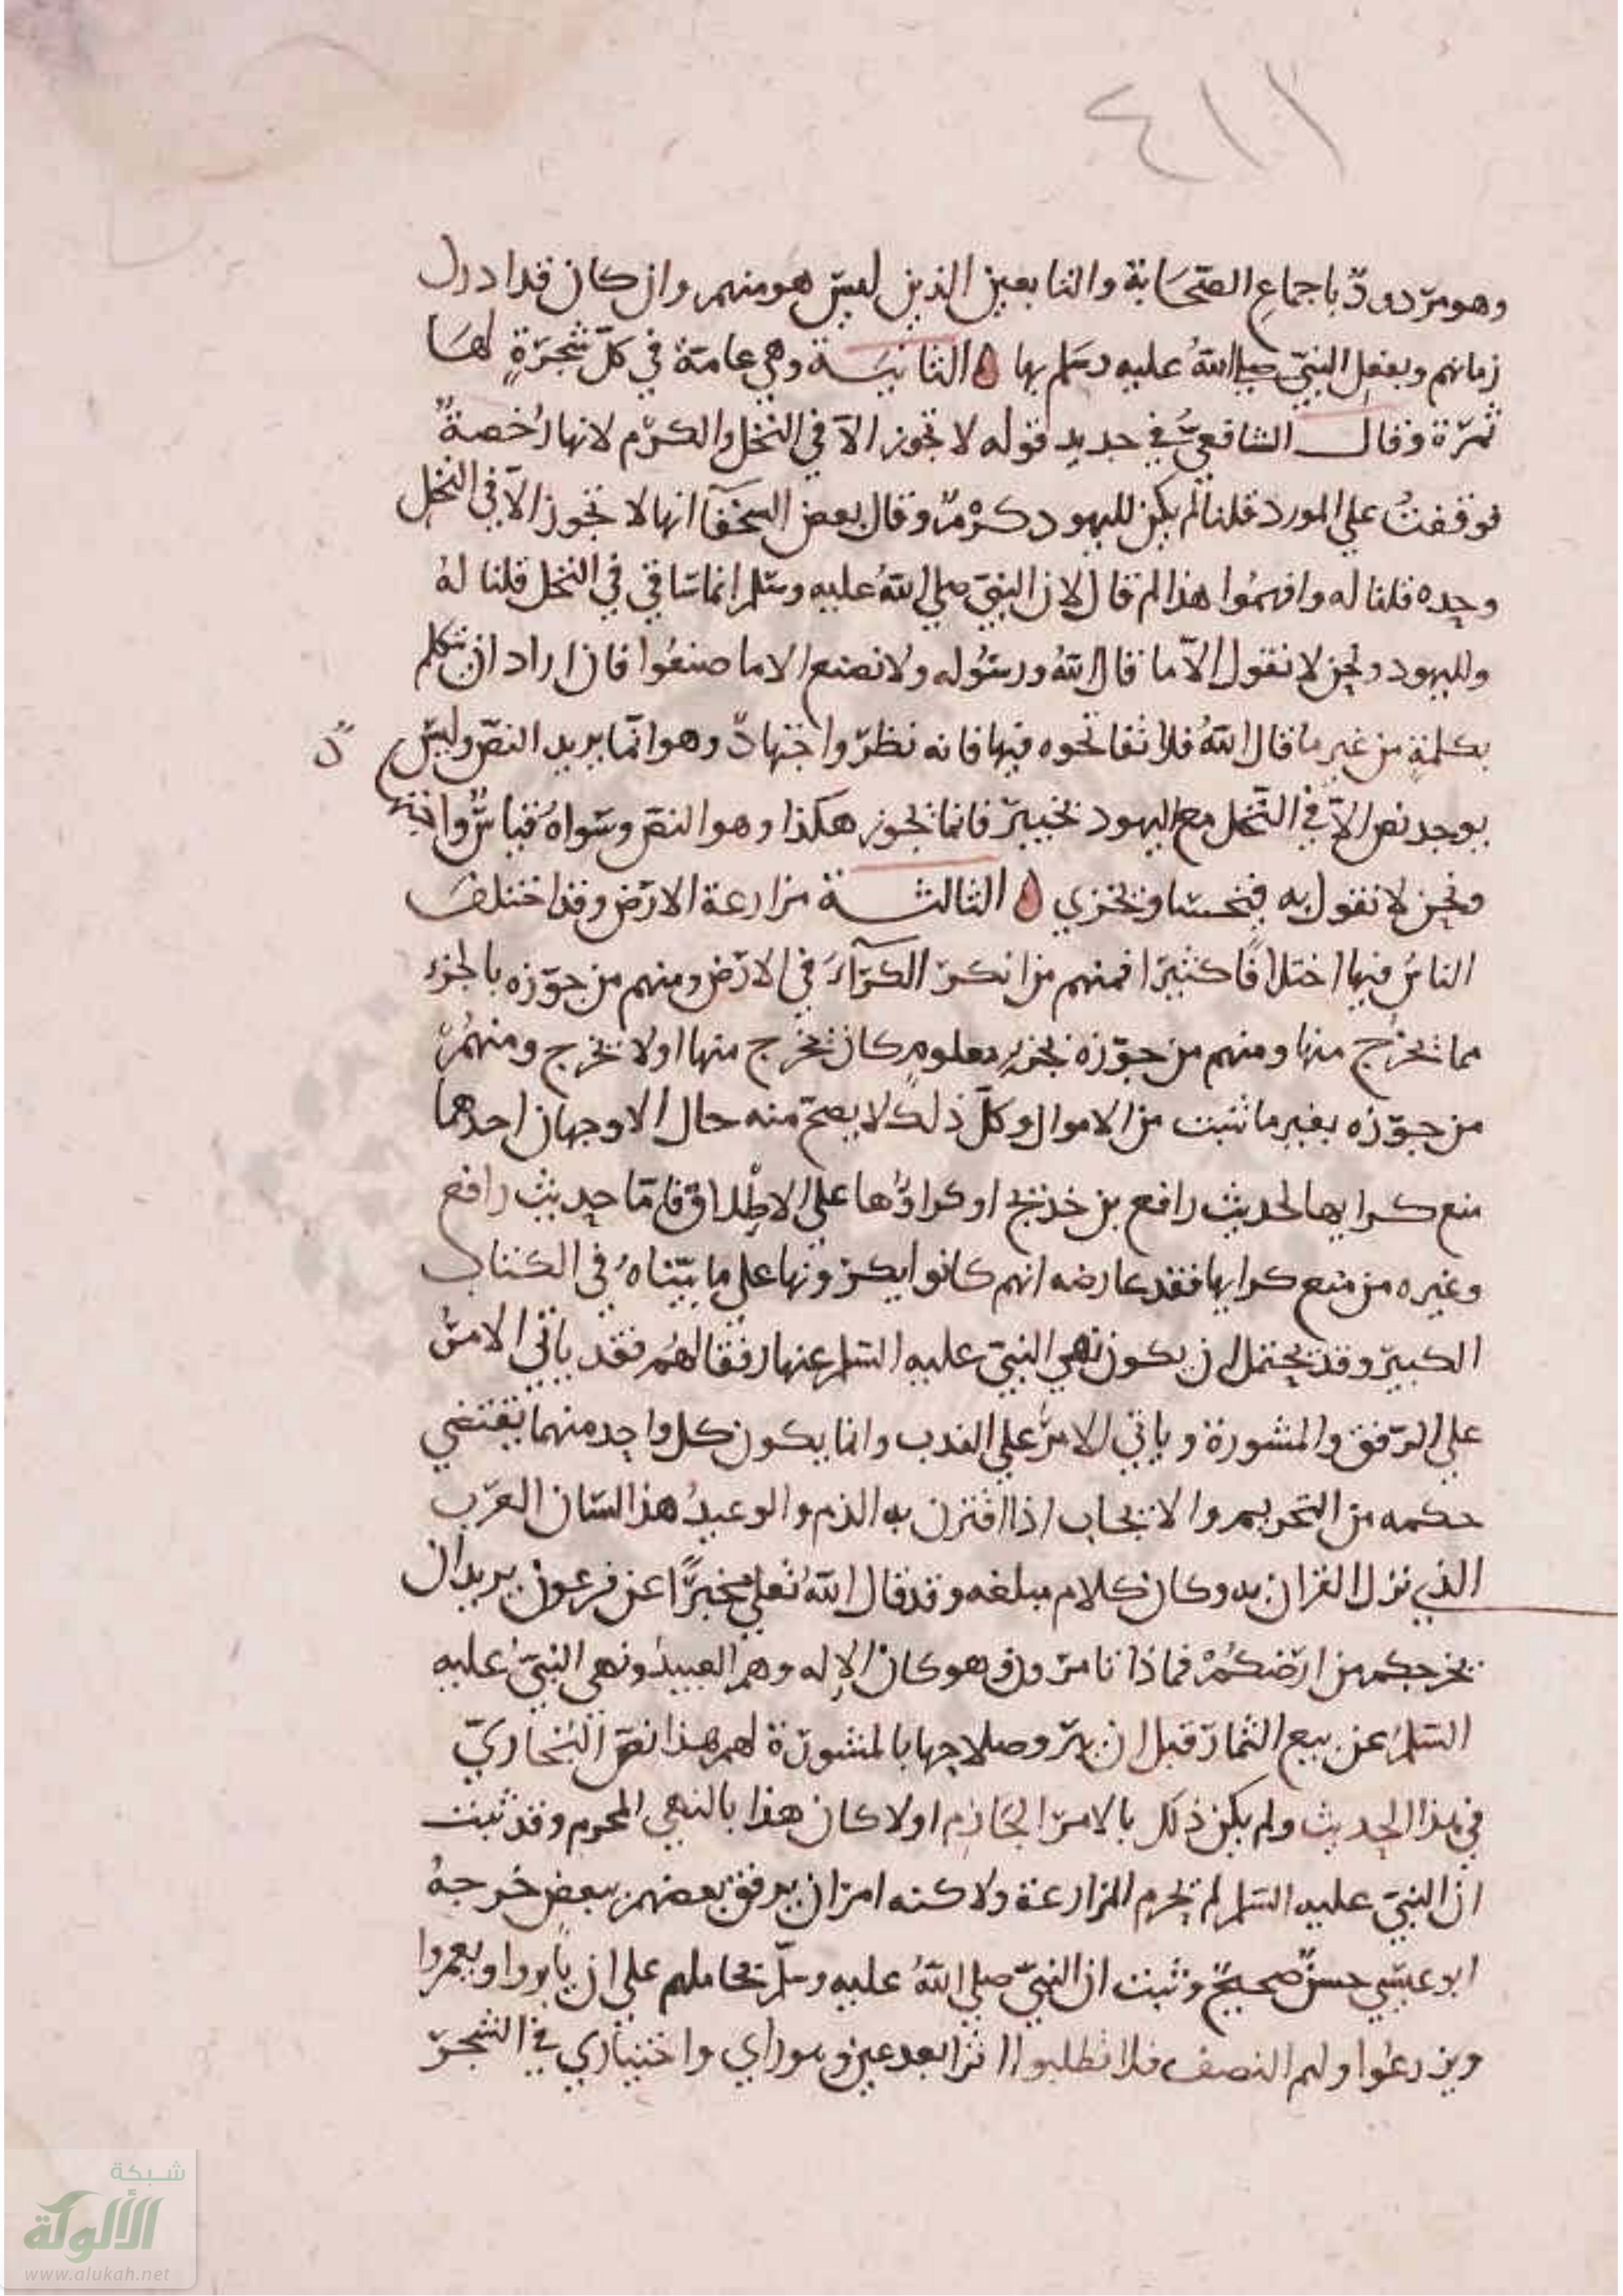 ٤١١
وهو مردود باجماع الصحابة والتابعين الذين ليس هو منهم وان كان قد ادرك
زمانهم وبفعل النبي صلى الله عليه وسلم بها الثانيـة وهي عامة في كل شجرة لها
ثمرة وقال الشافعي في جديد قوله لا تجوز الا في النخل والكرم لانها رخصة
فوقفت على المورد قلنا لم يكن لليهود كرم وقال بعض السخفا انها لا تجوز الا في النخل
وحده قلنا له وافهموا هذا لم قال لان النبي صلى الله عليه وسلم انما ساقي في النخل قلنا له
ولليهود ونحن لا نقول الا ما قال الله ورسوله ولا نصنع الا ما صنعوا فان اراد ان يتكلم
بكلمة من غير ما قال الله فلا تفاتحوه فيها فانه نظر واجتهاد وهو انما يريد النص وليس
يوجد نص الا في النخل مع اليهود بخيبر فانما تجوز هكذا وهو النص وسواه قياس
ونحن لا نقول به فيخسا ويخزي الثالثـة مزارعة الارض وقد اختلف
الناس فيها اختلافا كثيرا فمنهم من انكر الكراء في الارض ومنهم من جوزه بالجزء
مما تخرج منها ومنهم من جوزه بجزء معلوم كان يخرج منها او لا يخرج ومنهم
من جوزه بغير ما تنبت من الاموال وكل ذلك لا يصح منه حال الا وجهان احدهما
منع كرايها لحديث رافع بن خديج او كراؤها على الاطلاق فاما حديث رافع
وغيره من منع كرايها فقد عارضه انهم كانوا يكرونها على ما بيناه في الكتاب
الكبير وقد يحتمل ان يكون نهي النبي عليه السلم عنها رفقا لهم فقد ياتي الامر
على الرفق والمشورة وياتي الامر على الندب وانما يكون كل واحد منهما يقتضي
حكمه من التحريم والايجاب اذا اقترن به الذم والوعيد هذا لسان العرب
الذي نزل القران به وكان كلام مبلغه وقد قال الله تعلى مخبرا عن فرعون يريد ان
يخرجكم من ارضكم فماذا تامرون وهو كان الاله وهم العبيد ونهي النبي عليه
السلم عن بيع الثمار قبل ان يبدو صلاحها بالمشورة لهم هذا نص البخاري
في هذا الحديث ولم يكن ذلك بالامر الجازم اولا كان هذا بالنهي المحرم وقد ثبت
ان النبي عليه السلم لم يحرم المزارعة ولاكنه امر ان يرفق بعضهم ببعض خرجه
ابو عيسي حسن صحيح وثبت ان النبي صلى الله عليه وسلم عاملهم على ان يابروا ويعمروا
ويزرعوا ولهم النصف فلا تطلبوا اثرا بعد عين وهو راي واختياري في الشجر
شبكة
الألوكة
www.alukah.net